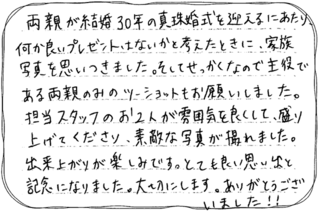 両親が結婚30年の真珠婚式を迎えるにあたり
何か良いプレゼントはないかと考えたときに、家族
写真を思いつきました。そしてせっかくなので主役で
ある両親のみのツーショットもお願いしました。
担当スタッフのお2人が雰囲気を良くして、盛り
上げてくださり、素敵な写真が撮れました。
出来上がりが楽しみです。とても良い思い出と
記念になりました。大切にします。ありがとうござ
いました!!